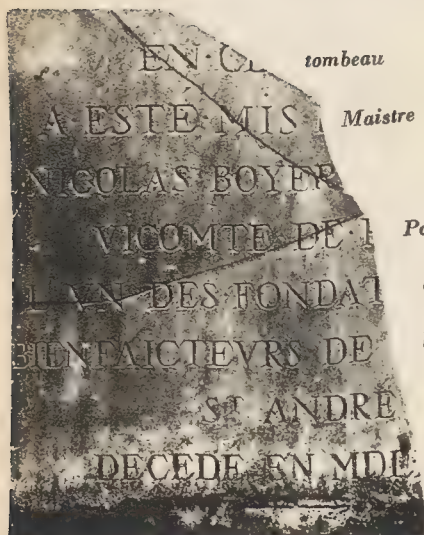 EN CE tombeau
A ESTÉ MIS Maistre
NICOLAS BOYER
VICOMTE DE
L'VN DES FONDAT
BIENFAICTEVRS DE
ST ANDRÉ
DECEDE EN MDL